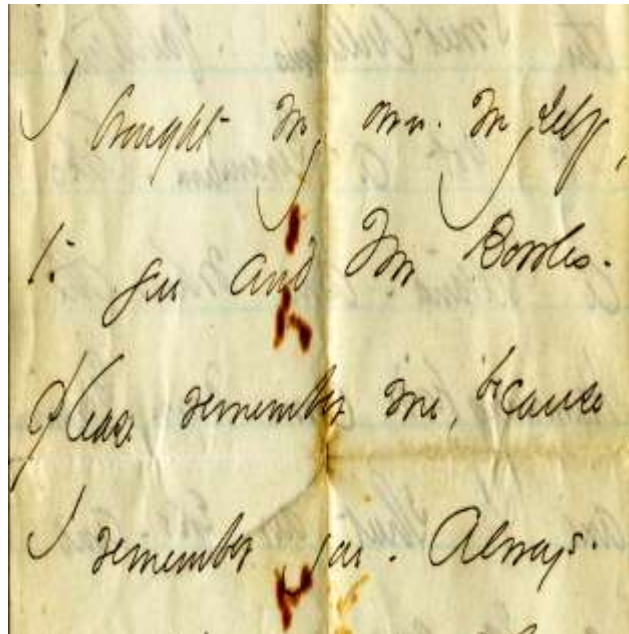 I brought my own - myself,
to you and Mr Bowles.
Please remember me, because
I remember you - Always.